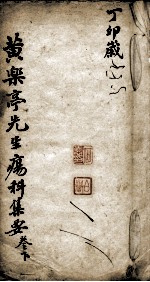 丁卯歲
黄樂亭先生瘍科集要卷下